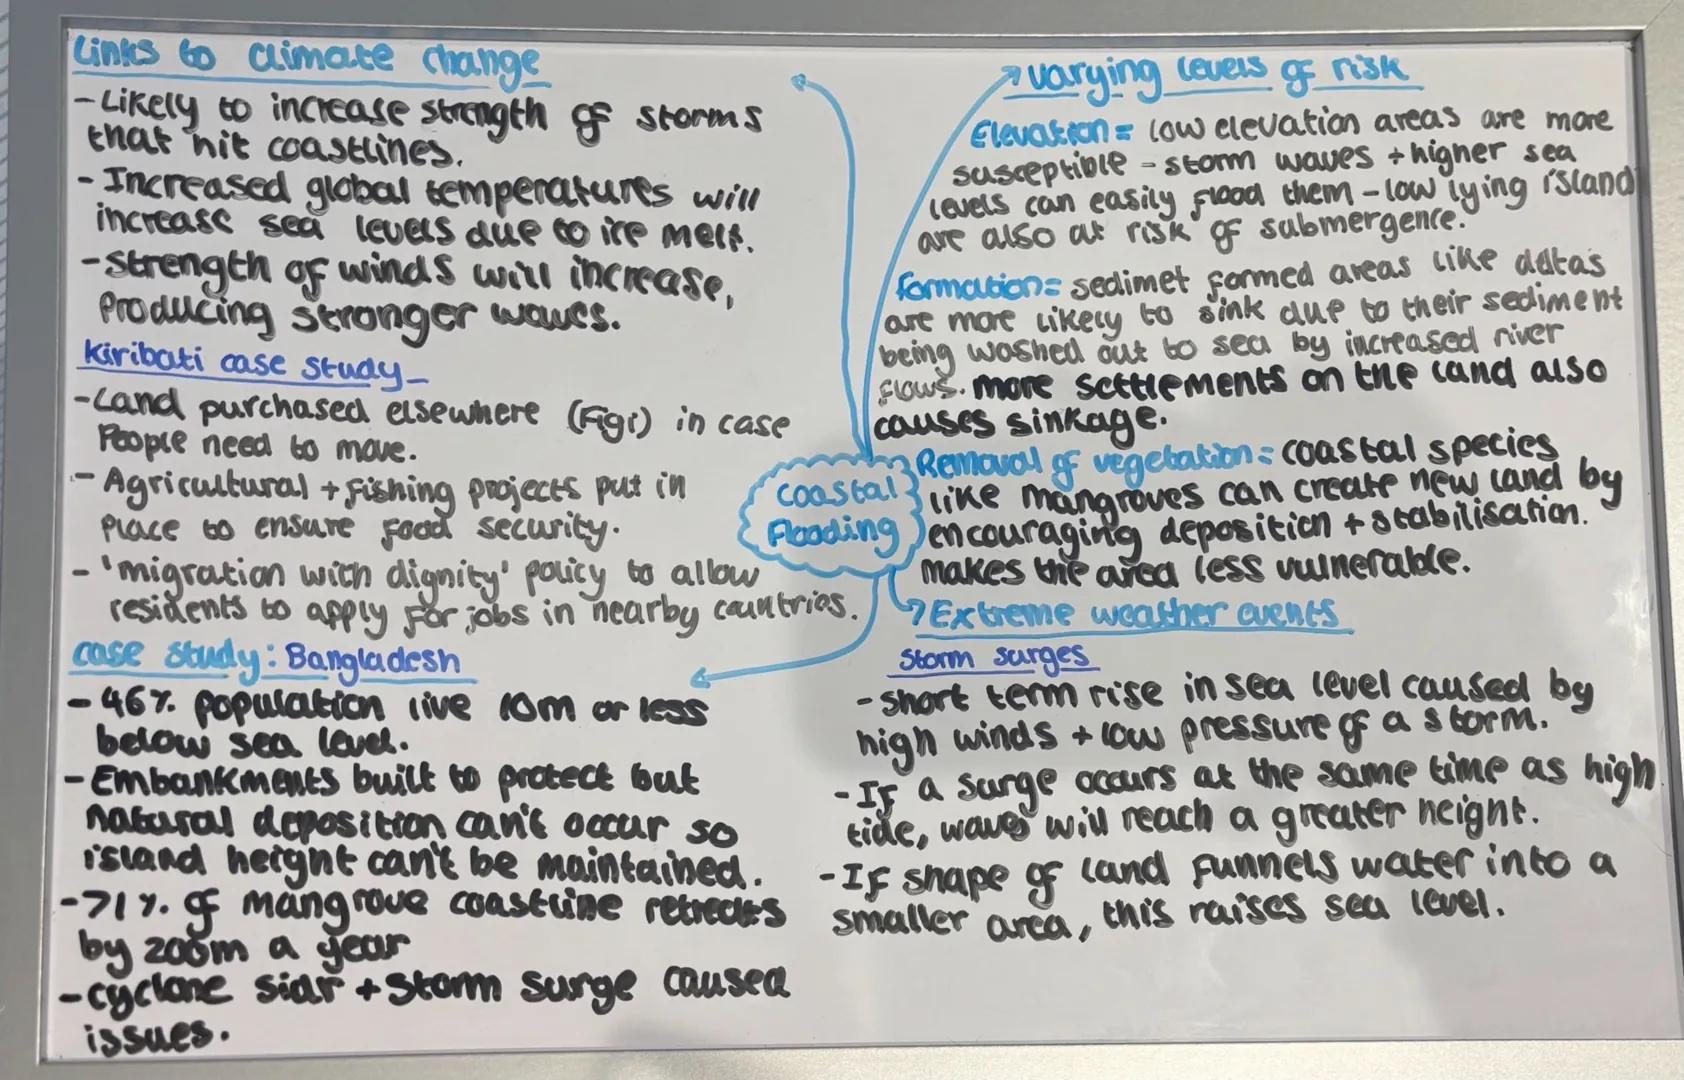 Links to climate change
- Likely to increase strength of storms
that hit coastlines.
- Increased global temperatures will
increase sea levels due to ice melt.
- Strength of winds will increase,
producing stronger waves.
Kiribati case study
- Land purchased elsewhere (Figi) in case
people need to move.
- Agricultural + fishing projects put in
place to ensure food security.
- 'migration with dignity' policy to allow
residents to apply for jobs in nearby countries.
case study: Bangladesh
- 46% population live 10m or less
below sea level.
- Embankments built to protect but
natural deposition can't occur so
island height can't be maintained.
- 71% of mangrove coastline retreats
by 200m a year
- cyclone sidr + storm surge caused
issues.
Coastal
Flooding
varying levels of risk
Elevation = low elevation areas are more
susceptible - storm waves + higher sea
levels can easily flood them - low lying island
are also at risk of submergence.
formation = sedimet formed areas like deltas
are more likely to sink due to their sediment
being washed out to sea by increased river
flows. more settlements on the land also
causes sinkage.
Removal of vegetation = coastal species
like mangroves can create new land by
encouraging deposition + stabilisation.
makes the area less vulnerable.
Extreme weather events
Storm surges
- short term rise in sea level caused by
high winds + low pressure of a storm.
- If a surge occurs at the same time as high
tide, waves will reach a greater height.
- If shape of land funnels water into a
smaller area, this raises sea level.